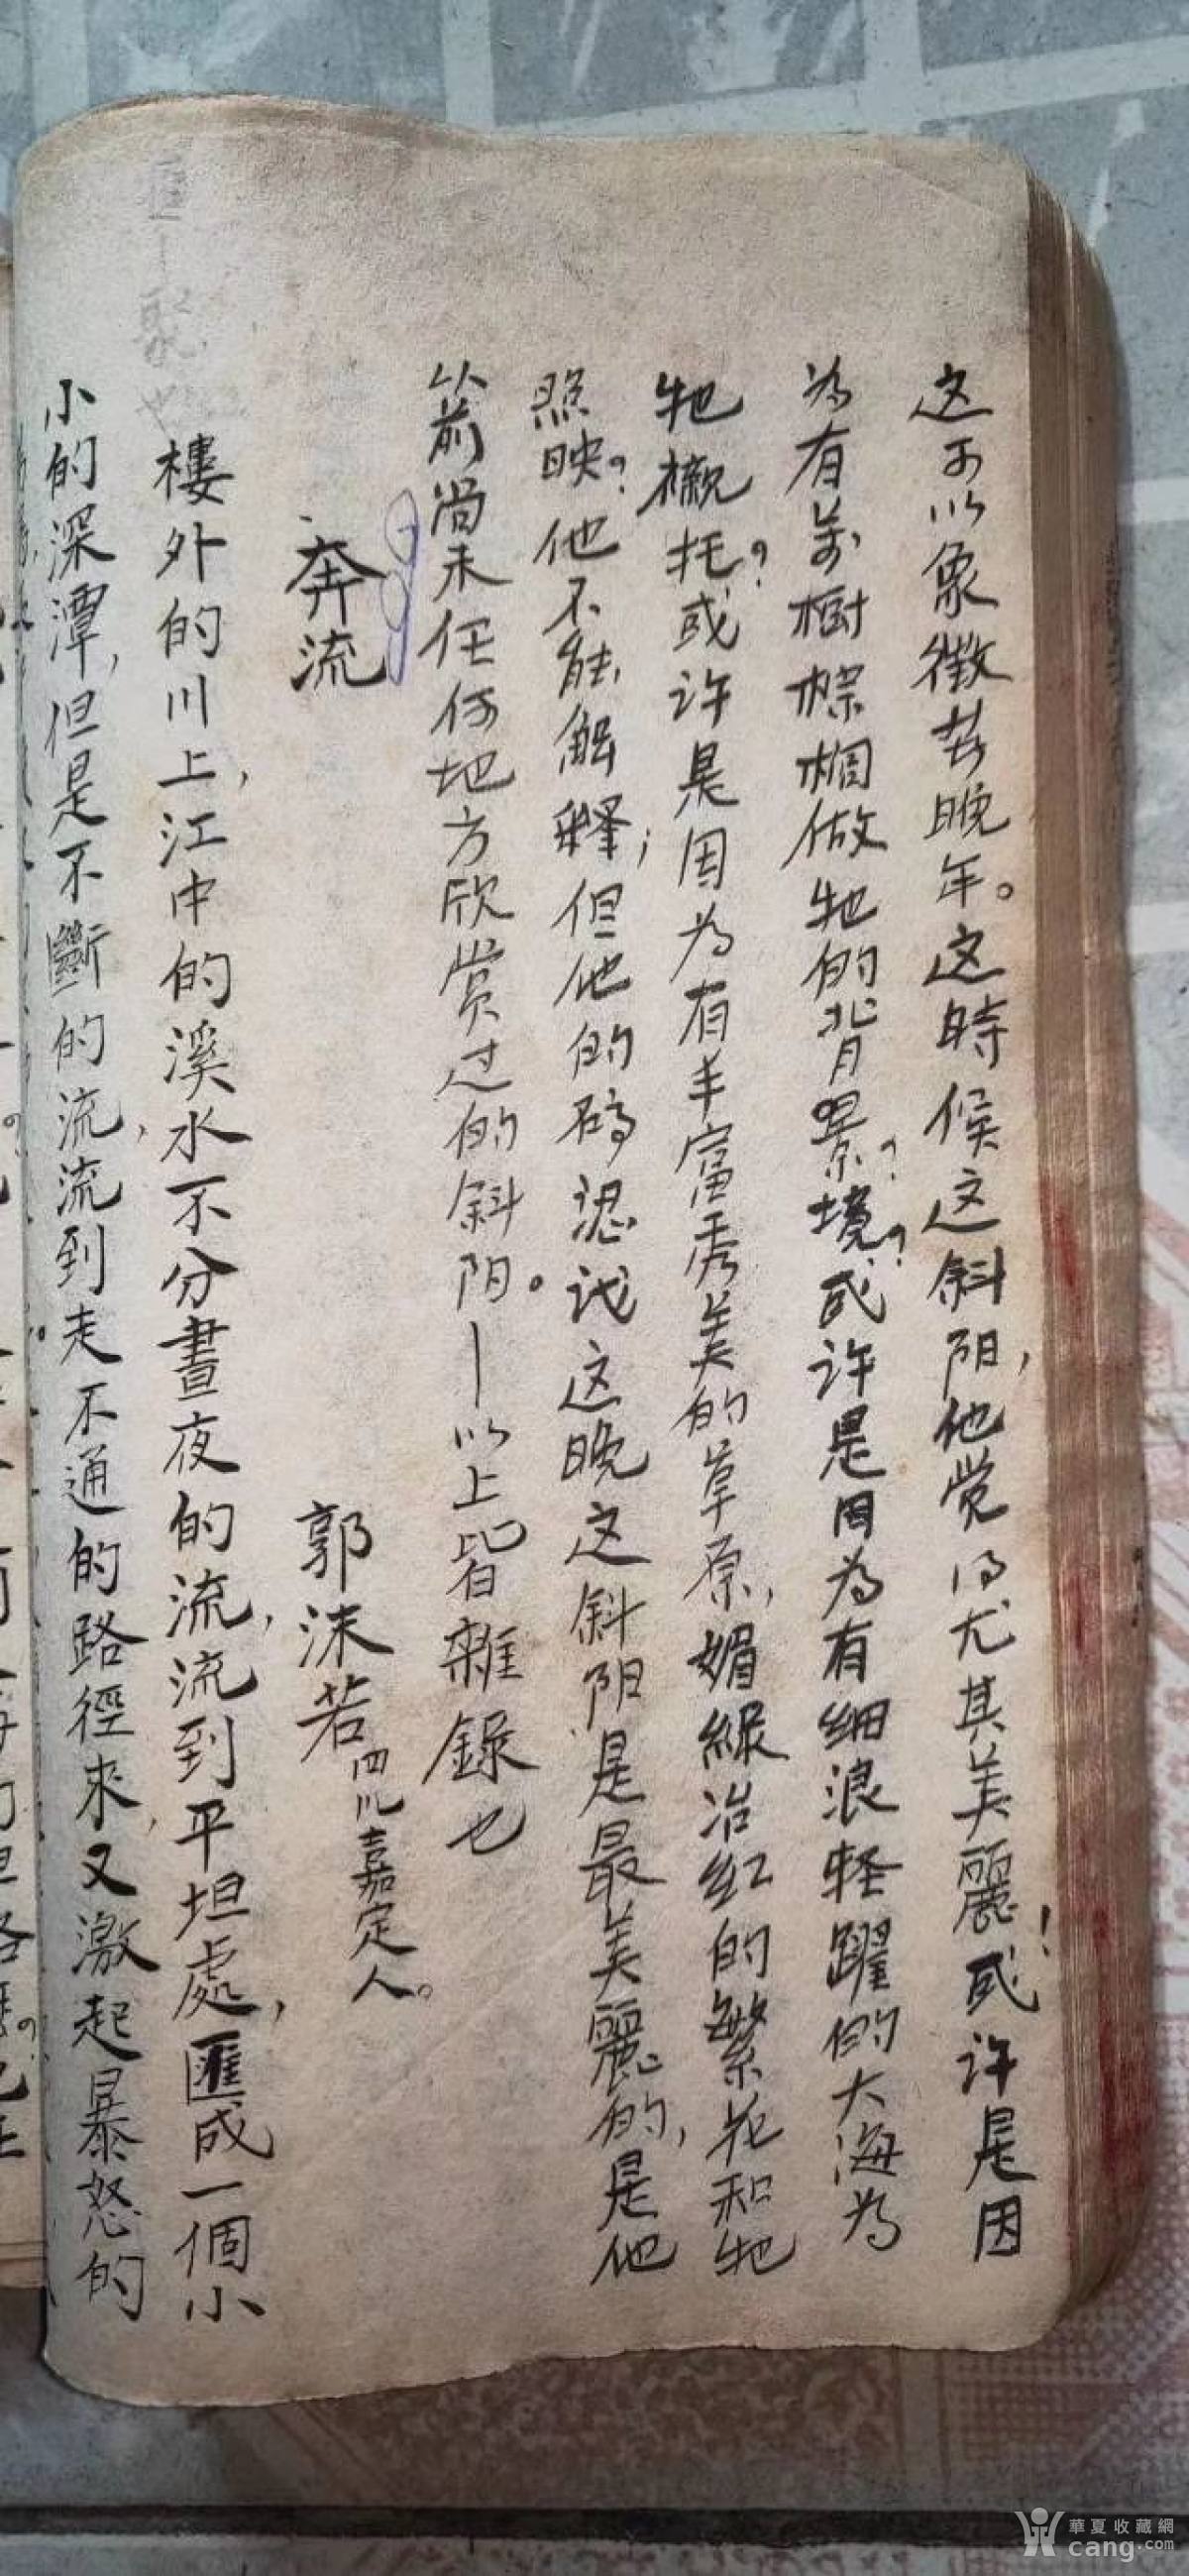 这可以象徵其晚年。这時候这斜阳，他觉得尤其美麗！或许是因
为有万樹棕榈做牠的背景？境？或许是因为有细浪轻躍的大海为
牠襯托？或许是因为有丰富秀美的草原，媚綠冶红的繁花和牠
照映？他不能解釋；但他的確認識这晚这斜阳是最美麗的，是他
从前尚未任何地方欣赏过的斜阳。—以上皆雜錄也
奔流
郭沫若 四川嘉定人。
匯—聚也
樓外的川上，江中的溪水不分晝夜的流，流到平坦處，匯成一個小
小的深潭，但是不斷的流，流到走不通的路徑來，又激起暴怒的
華夏收藏網
cang.com